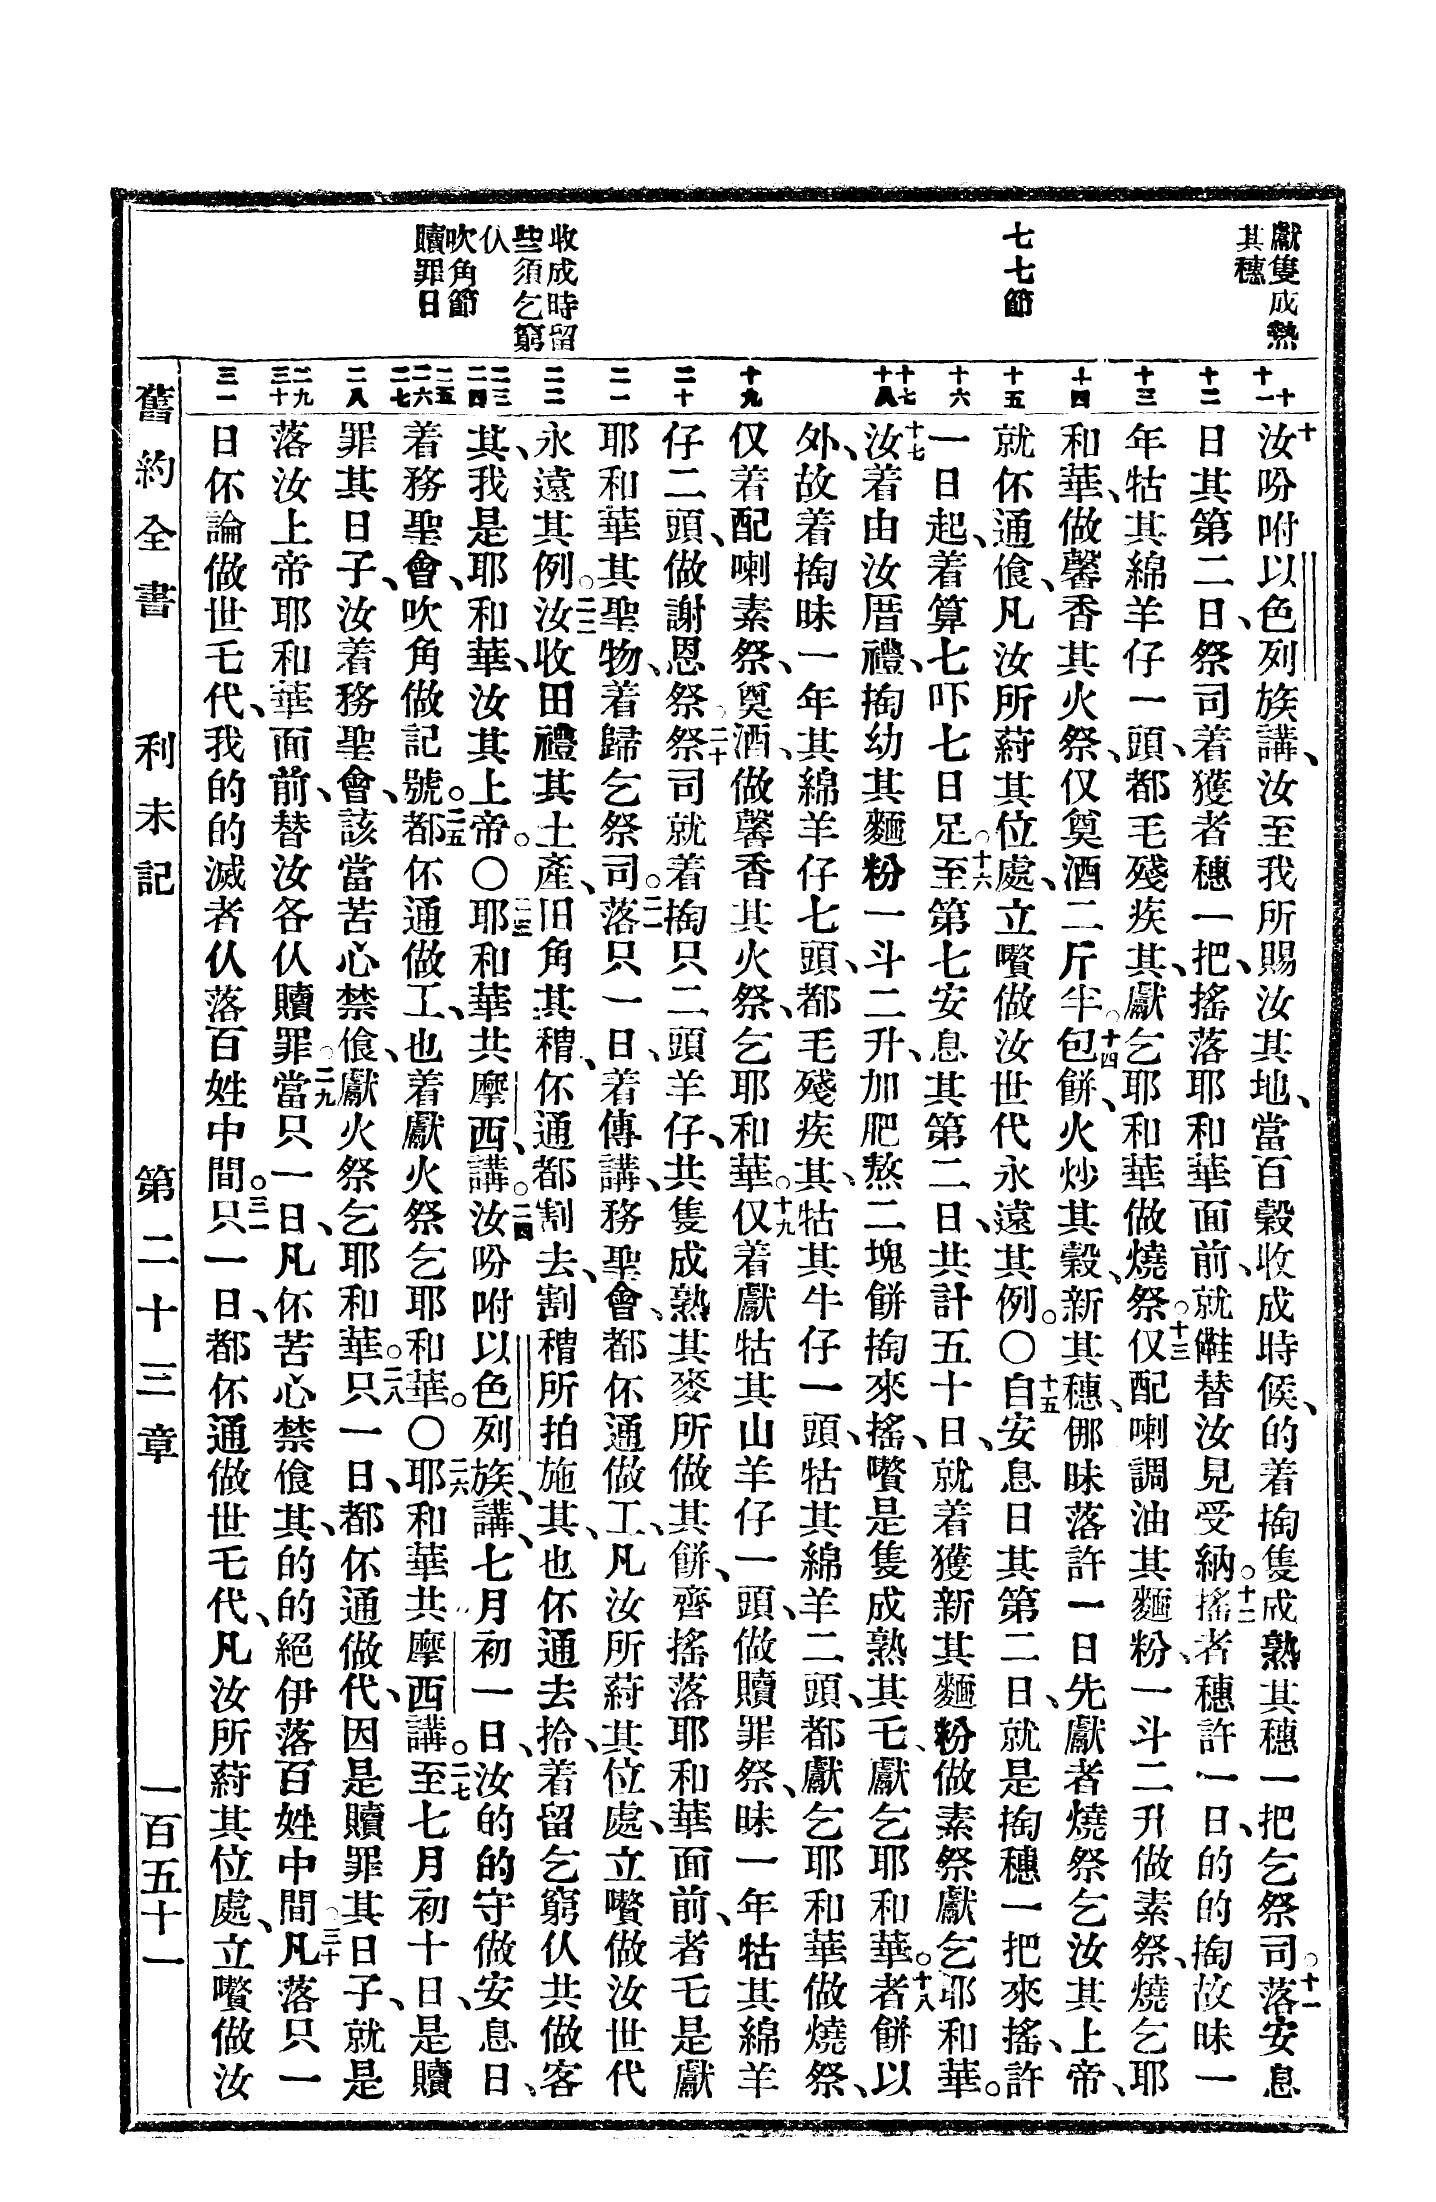 獻隻成熟
其穗
七七節
收成時留
些須乞窮
仈
吹角節
贖罪日
十
十一
十二
十三
十四
十五
十六
十七
十八
十九
二十
二一
二二
二三
二四
二五
二六
二七
二八
二九
三十
三一
十汝吩咐以色列族講、汝至我所賜汝其地、當百穀收成時候、的着掏隻成熟其穗一把乞祭司。十一落安息
日其第二日、祭司着獲者穗一把、搖落耶和華面前、就㒰替汝見受納。十二搖者穗許一日、的的掏故昧一
年牯其綿羊仔一頭、都毛殘疾其、獻乞耶和華做燒祭。十三仅配喇調油其麵粉、一斗二升做素祭、燒乞耶
和華、做馨香其火祭、仅奠酒二斤半。十四包餅、火炒其穀、新其穗、倻昧落許一日先獻者燒祭乞汝其上帝、
就伓通飧、凡汝所葤其位處、立嚽做汝世代永遠其例。〇十五自安息日其第二日、就是掏穗一把來搖、許
一日起、着算七吓七日足。十六至第七安息其第二日、共計五十日、就着獲新其麵粉做素祭獻乞耶和華。
十七汝着由汝厝禮、掏幼其麵粉一斗二升、加肥熬二塊餅掏來搖、嚽是隻成熟其乇、獻乞耶和華。十八者餅以
外、故着掏昧一年其綿羊仔七頭、都毛殘疾其、牯其牛仔一頭、牯其綿羊二頭、都獻乞耶和華做燒祭、
仅着配喇素祭、奠酒、做馨香其火祭、乞耶和華。十九仅着獻牯其山羊仔一頭、做贖罪祭、昧一年牯其綿羊
仔二頭、做謝恩祭。二十祭司就着掏只二頭羊仔、共隻成熟其麥所做其餅、齊搖落耶和華面前、者乇是獻
耶和華其聖物、着歸乞祭司。二一落只一日、着傳講、務聖會、都伓通做工、凡汝所葤其位處、立嚽做汝世代
永遠其例。二二汝收田禮其土產、旧角其穳、伓通都割去、割穳所拍施其、也伓通去拾、着留乞窮仈共做客
其、我是耶和華、汝其上帝。〇二三耶和華共摩西講。二四汝吩咐以色列族講、七月初一日、汝的的守做安息日、
着務聖會、吹角做記號。二五都伓通做工、也着獻火祭乞耶和華。〇二六耶和華共摩西講。二七至七月初十日、是贖
罪其日子、汝着務聖會、該當苦心禁飧、獻火祭乞耶和華。二八只一日、都伓通做代、因是贖罪其日子、就是
落汝上帝耶和華面前、替汝各仈贖罪。二九當只一日、凡伓苦心禁飧其、的的絕伊落百姓中間。三十凡落只一
日伓論做世乇代、我的的滅者仈落百姓中間。三一只一日、都伓通做世乇代、凡汝所葤其位處、立嚽做汝
舊約全書　利未記　第二十三章　一百五十一